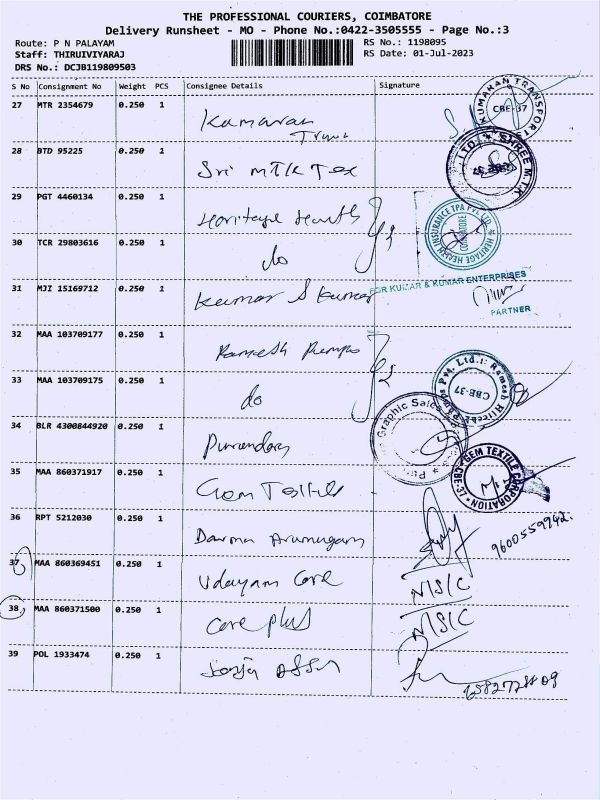 THE PROFESSIONAL COURIERS, COIMBATORE
Delivery Runsheet - MO - Phone No.:0422-3505555 - Page No.:3
Route: P N PALAYAM
RS No.: 1198095
Staff: THIRUIVIYARAJ
RS Date: 01-Jul-2023
DRS No.: DCJB119809503
S No Consignment No Weight PCS Consignee Details Signature
27 MTR 2354679 0.250 1 Kumaran
Trans
KUMARAN TRANSPORTS CBE-37
28 BTD 95225 0.250 1 Sri MTK Tex
SHREE M.T.K. LTD
29 PGT 4460134 0.250 1 Heritage Health
30 TCR 29803616 0.250 1 do
HERITAGE HEALTH INSURANCE TPA PVT LTD COIMBATORE
31 MJI 15169712 0.250 1 Kumar & Kumar
FOR KUMAR & KUMAR ENTERPRISES
PARTNER
32 MAA 103709177 0.250 1 Ramesh Pumps
33 MAA 103709175 0.250 1 do
Pvt. Ltd. Ramesh CBE-37
34 BLR 4300844920 0.250 1
Graphic Sales
35 MAA 860371917 0.250 1 Gem Textiles
GEM TEXTILE CORPORATION CBE-37
36 RPT 5212030 0.250 1 Arumugam
9600559942
37 MAA 860369451 0.250 1 Udayam Care N/S/C
38 MAA 860371500 0.250 1 Care plus N/S/C
39 POL 1933474 0.250 1